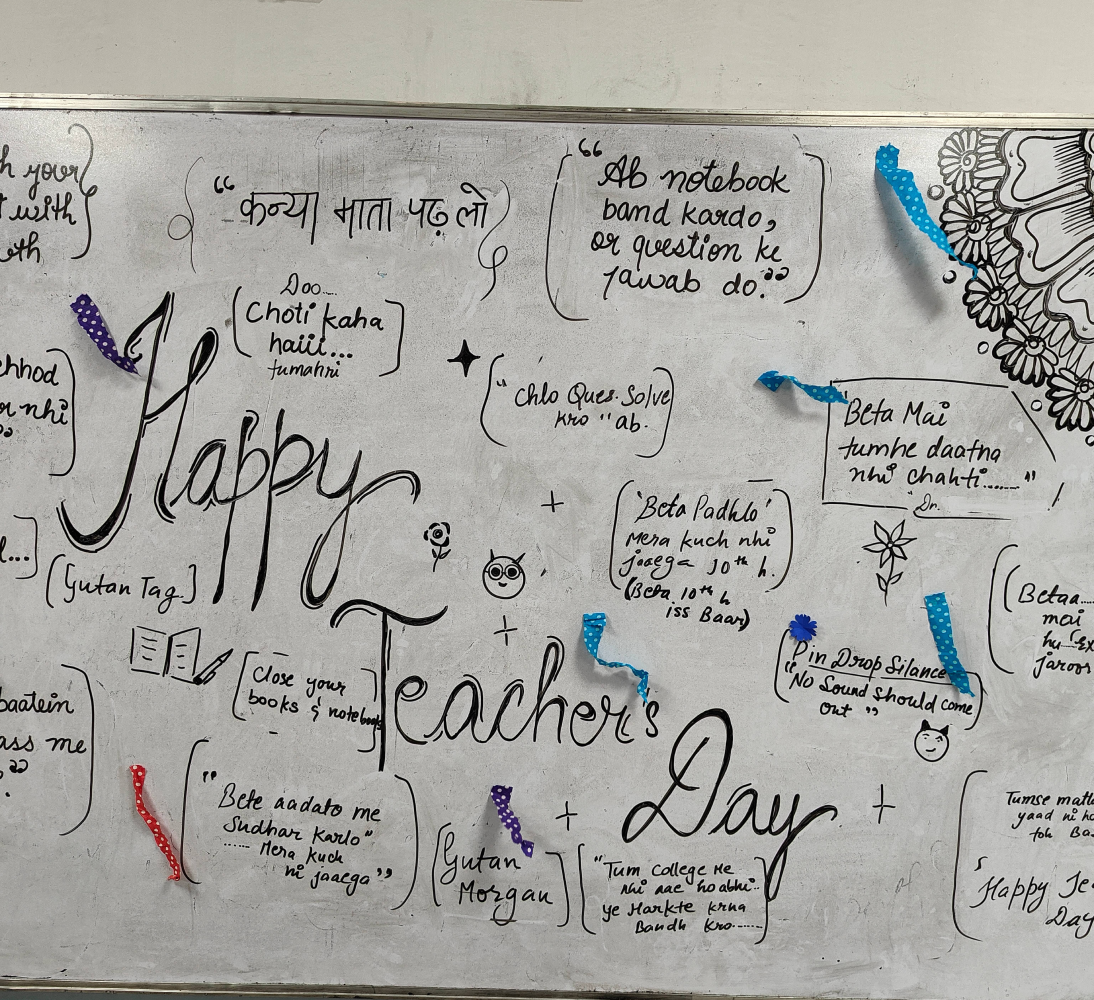 h your
with
“ कन्या माता पढ़ लो
“ Ab notebook
band kardo,
or question ke
jawab do.”
Doo....
Choti kaha
haiii...
tumahri
chhod
nhi
“ Chlo Ques. Solve
kro “ ab.
Beta Mai
tumhe daatna
nhi chahti......”
Dr.
Happy
'Beta Padhlo'
Mera kuch nhi
jaaega 10th h.
(Beta 10th h
iss Baar)
[Gutan Tag.]
Betaa....
mai
hu
jaroor
Pin Drop Silance
“No Sound Should come
out ”
Close your
books & notebooks
Teacher's
Day
baatein
ass me
“ Bete aadato me
Sudhar Karlo”
...... Mera kuch
ni jaaega”
Gutan
Morgan
“Tum College Me
nhi aae ho abhi..
ye Harkte krna
Bandh Kro.......
Tumse
yaad ni
toh
'Happy Te
Day